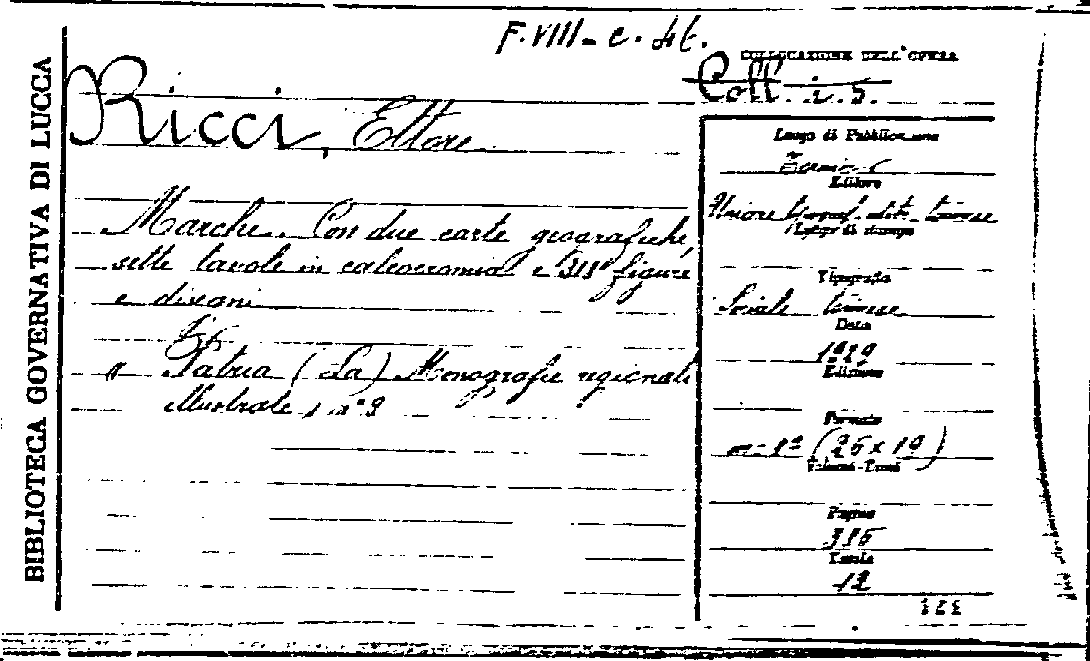 BIBLIOTECA GOVERNATIVA DI LUCCA
F. VIII - c. 46.
COLLOCAZIONE DELL'OPERA
Coll. i. 5.
Ricci, Ettore
Marche. Con due carte geografiche,
sette tavole in calcocromia e 313 figure
e disegni
Patria (La) Monografie regionali
illustrate, n° 3
Luogo di Pubblicazione
Torino
Editore
Unione tipograf. edit. torinese
Luogo di stampa
Tipografia
Sociale torinese
Data
1929
Edizione
Formato
(26 x 19)
Pagine
316
Tavole
12